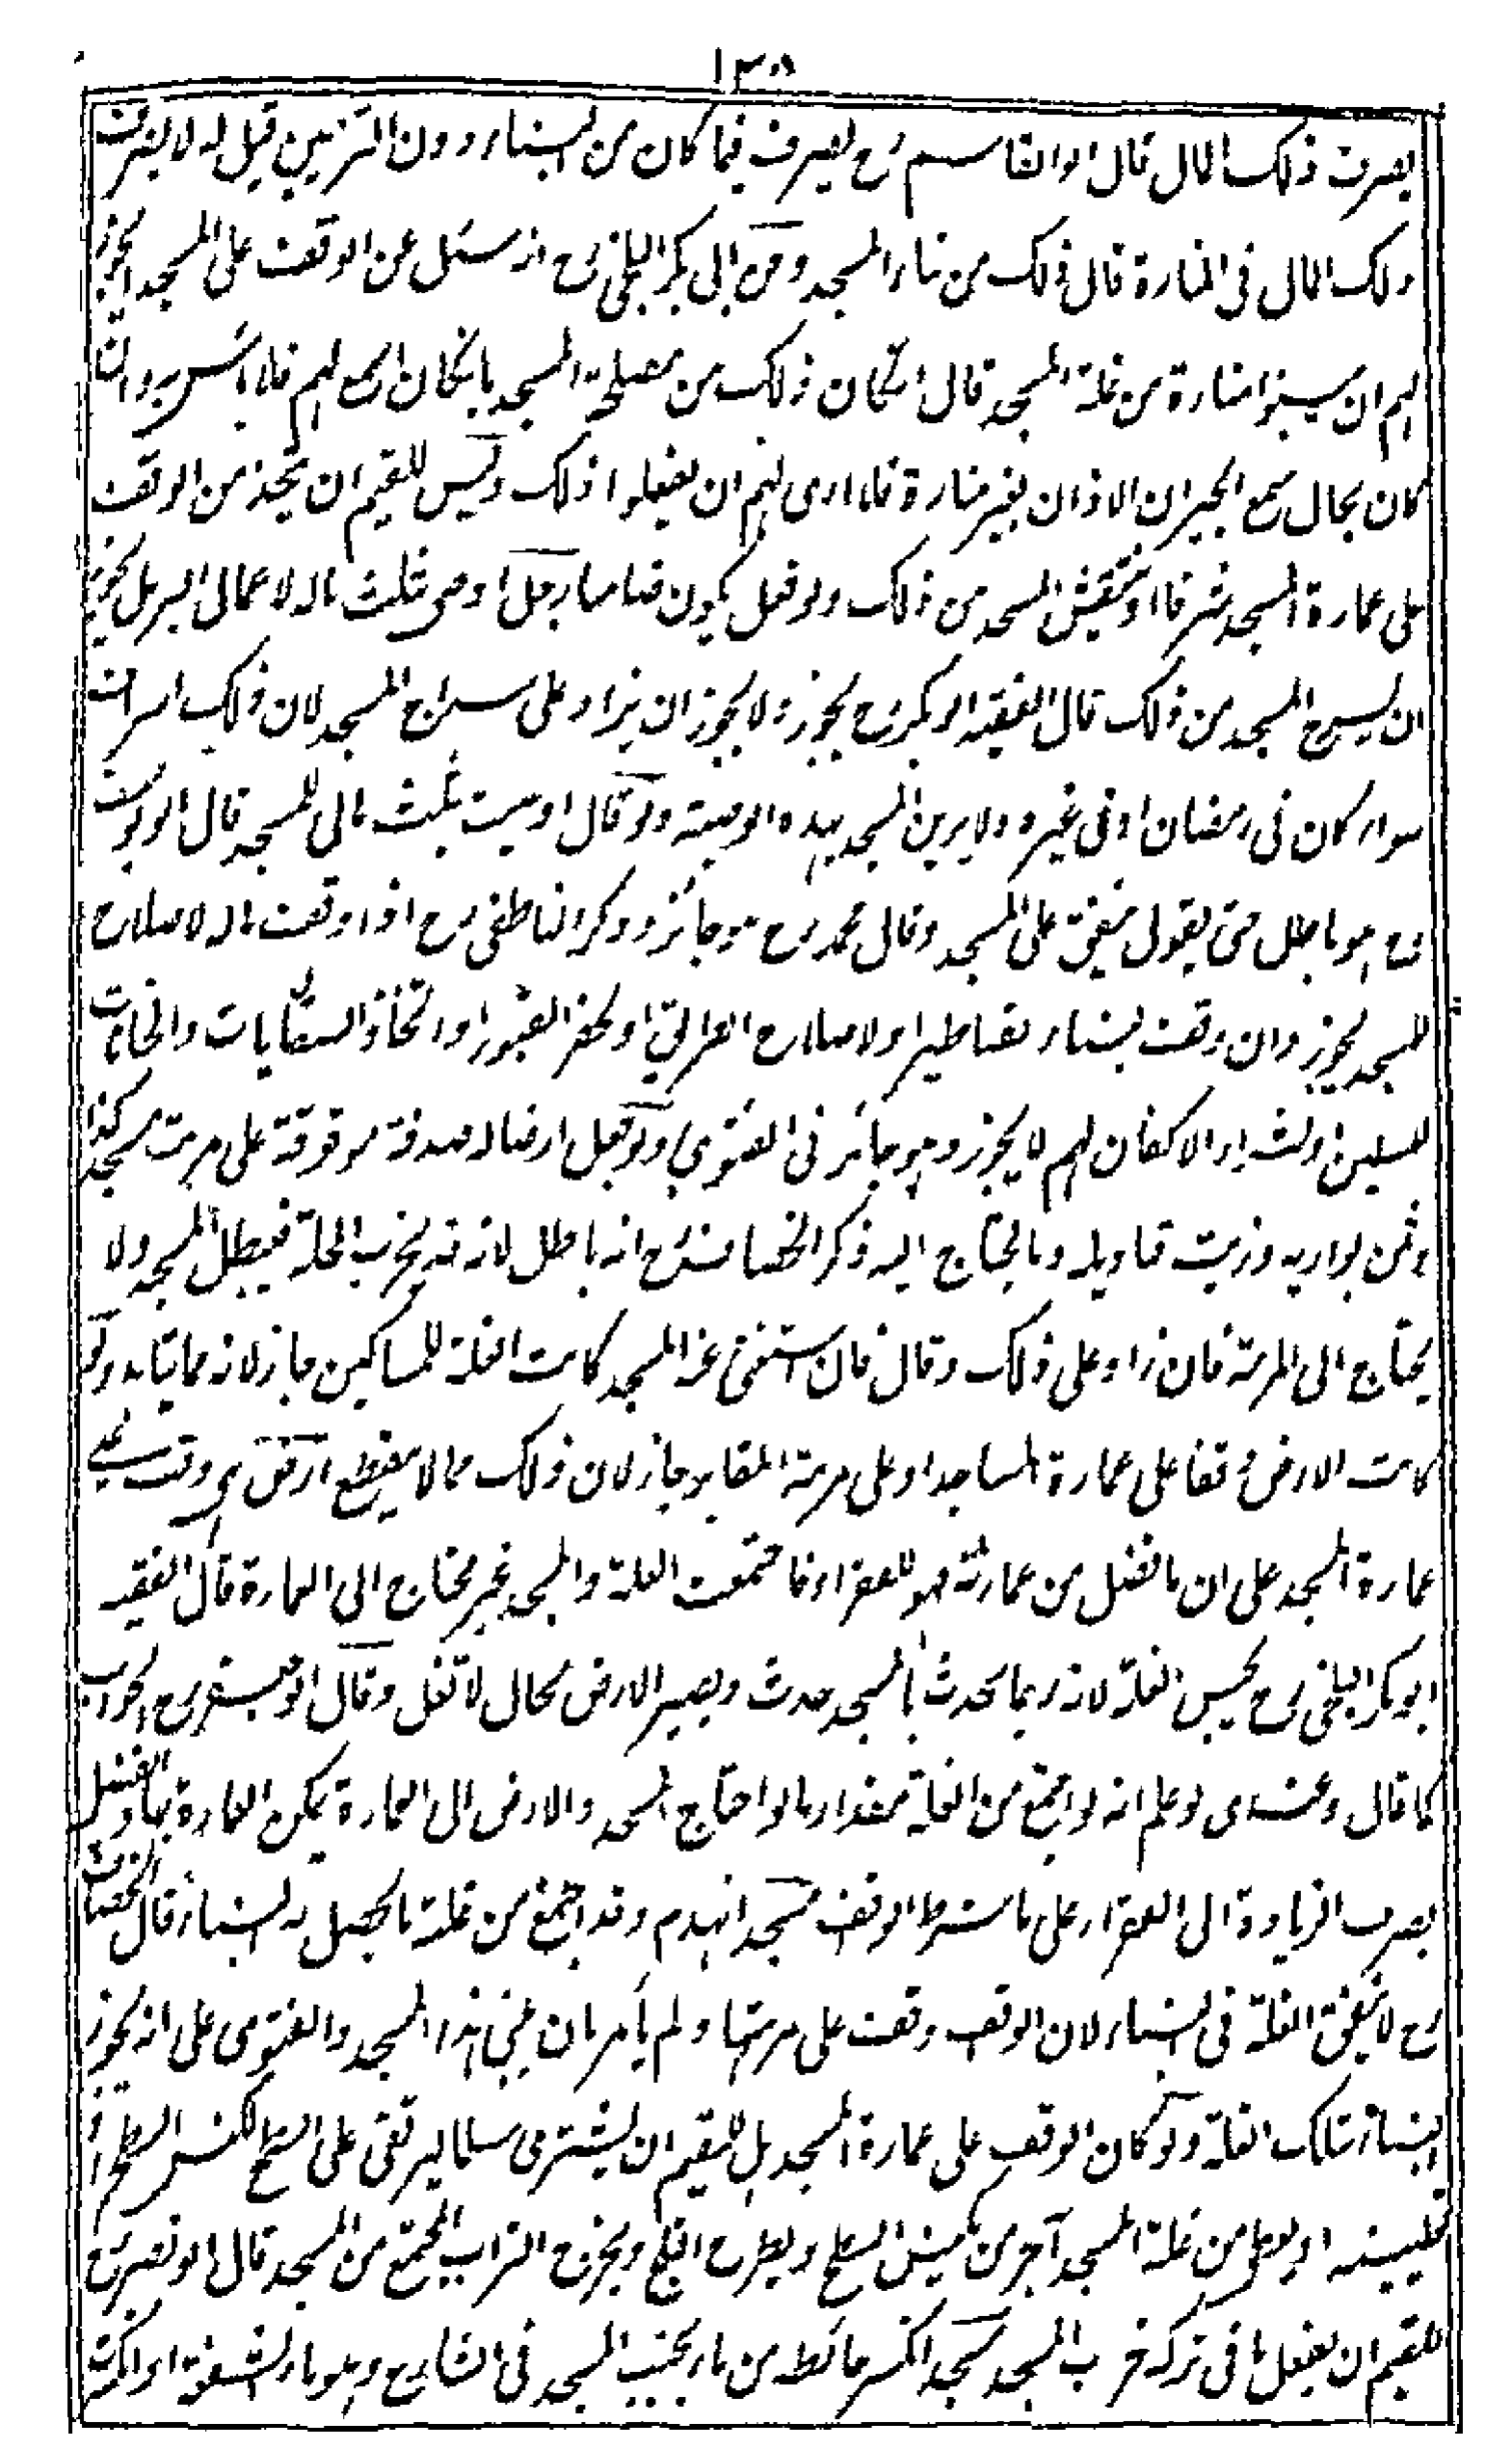 ١٣٨
يصرف ذلك المال قال ابو القاسم رح يصرف فيما كان من البناء دون التزيين قيل له لا يصرف
ذلك المال فى المنارة قال ذلك من بناء المسجد وعن ابى بكر البلخى رح انه سئل عن الوقف على المسجد ايجوز
لهم ان يبنوا منارة من غلة المسجد قال ان كان ذلك من مصلحة المسجد بان كان اسمع لهم فلا بأس به وان
كان بحال سمع الجيران الاذان بغير منارة فلا ارى لهم ان يفعلوا ذلك وليس للقيم ان يتخذ من الوقف
على عمارة المسجد شرفا او ينقش المسجد من ذلك ولو فعل يكون ضامنا رجل اوصى بثلث ماله لاعمال البر هل يجوز
ان يسرج المسجد من ذلك قال الفقيه ابو بكر رح يجوز ولا يجوز ان يزاد على سراج المسجد لان ذلك اسراف
سواء كان فى رمضان او فى غيره ولا يزين المسجد بهذه الوصية ولو قال اوصيت بثلث مالى للمسجد قال ابو يوسف
رح هو باطل حتى يقول ينفق على المسجد وقال محمد رح هو جائز وذكر الناطفى رح اذا وقف ماله لاصلاح
المسجد يجوز وان وقف لبناء القناطير او لاصلاح الطريق او لحفر القبور او اتخاذ السقايات والخانات
للمسلمين او لشراء الاكفان لهم لا يجوز وهو جائز فى الفتوى ولو جعل ارضا له صدقة موقوفة على مرمة مسجد كذا
وثمن بواريه وزيت قناديله وما يحتاج اليه ذكر الخصاف رح انه باطل لانه قد يخرب المحلة فيبطل المسجد ولا
يحتاج الى المرمة فان زاد على ذلك وقال فان استغنى عنه المسجد كانت الغلة للمساكين جاز لانه مما يتأبد ولو
كانت الارض وقفا على عمارة المساجد او على مرمة المقابر جاز لان ذلك مما لا ينقطع ارض وقف على
عمارة المسجد على ان ما فضل من عمارته فهو للفقراء فاجتمعت الغلة والمسجد غير محتاج الى العمارة قال الفقيه
ابو بكر البلخى رح يحبس الغلة لانه ربما يحدث بالمسجد حدث ويصير الارض بحال لا تغل وقال ابو جعفر رح الجواب
كما قال وعندى لو علم انه لو اجتمع من الغلة مقدار ما لو احتاج المسجد والارض الى العمارة يمكن العمارة بها ويفضل
يصرف الزيادة الى الفقراء على ما شرط الوقف مسجد انهدم وقد اجتمع من غلته ما يحصل به البناء قال الخصاف
رح لا ينفق الغلة فى البناء لان الوقف وقف على مرمتها ولم يأمر بان يبنى هذا المسجد والفتوى على انه يجوز
البناء بتلك الغلة ولو كان الوقف على عمارة المسجد هل للقيم ان يشترى سلما ليرتقى على السطح لكنس السطح او
تطيينه او يعطى من غلة المسجد آجر من يكنس السطح ويطرح الثلج ويخرج التراب المجتمع من المسجد قال ابو نصر رح
للقيم ان يفعل ما فى تركه خراب المسجد مسجد انكسر حائطه من ماء بجنب المسجد فى الشارع وهو ماء الشفة او انكسرت